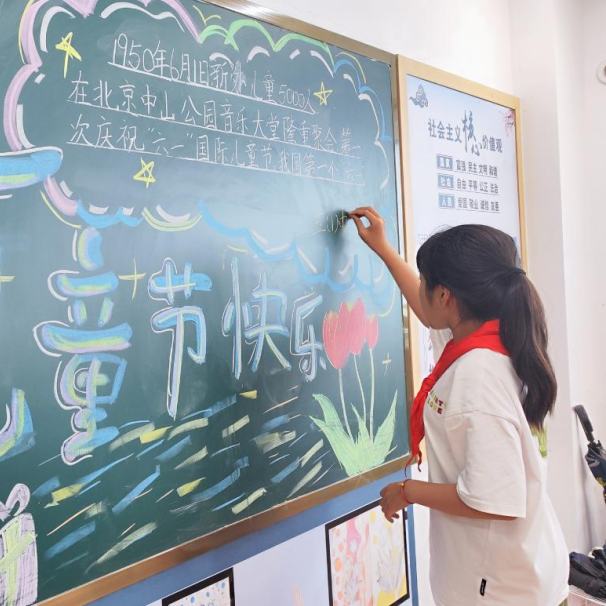 1950年6月1日新办儿童5000人
在北京中山公园音乐大堂隆重聚会第一
次庆祝"六一"国际儿童节我国第一个六一
童节快乐
社会主义核心价值观
富强 民主 文明 和谐
自由 平等 公正 法治
爱国 敬业 诚信 友善